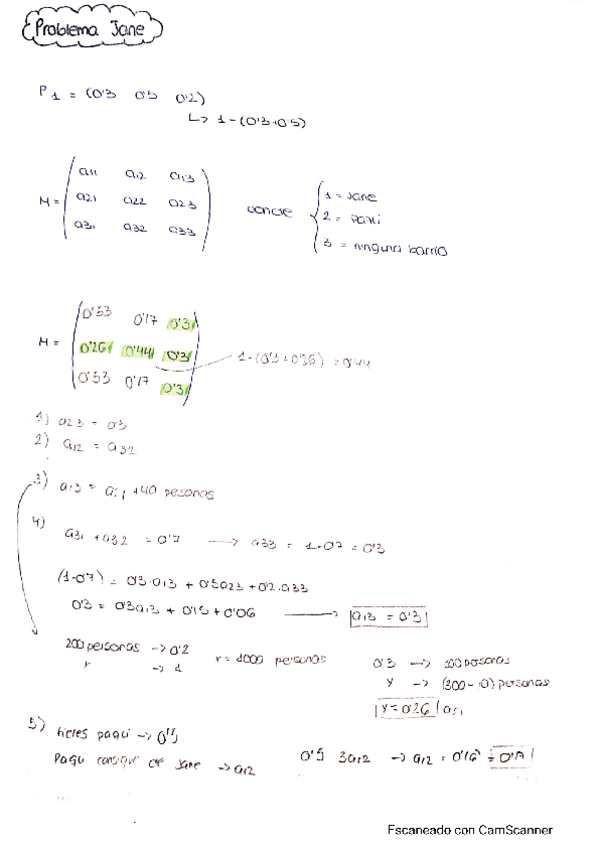 Problema Jane
P1 = (0'3 0'5 0'2)
↳ 1-(0'3+0'5)
M = ( a11 a12 a13
a21 a22 a23
a31 a32 a33 )
donde { 1 = Jane
2 = Paqui
3 = ningún barrio
M = ( 0'53 0'17 0'3
0'26 0'44 0'3
0'53 0'17 0'3 )
1-(0'3+0'26) = 0'44
1) a23 = 0'3
2) a12 = a32
3) a13 = a11 +40 personas
4) a31 + a32 = 0'7 → a33 = 1-0'7 = 0'3
(1-0'7) = 0'3·a13 + 0'5a23 + 0'2·a33
0'3 = 0'3a13 + 0'15 + 0'06 → a13 = 0'3
200 personas → 0'2
x → 1
x = 1000 personas
0'3 → 300 personas
y → (300-40) personas
y = 0'26
5) fieles paqui → 0'5
Paqui consigue de Jane → a12
0'5 3a12 → a12 = 0'16 = 0'17
Escaneado con CamScanner